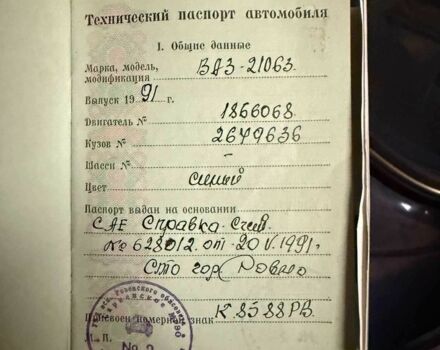 Технический паспорт автомобиля
1. Общие данные
Марка, модель, модификация ВАЗ-21063
Выпуск 1991 г.
Двигатель № 1866068
Кузов № 2649636
Шасси № –
Цвет синий
Паспорт выдан на основании
САЕ Справка-Счет
№ 628012 от 20 V. 1991 г
Сто гор Ровно
Присвоен номерной знак К 8588 РВ
М. П.